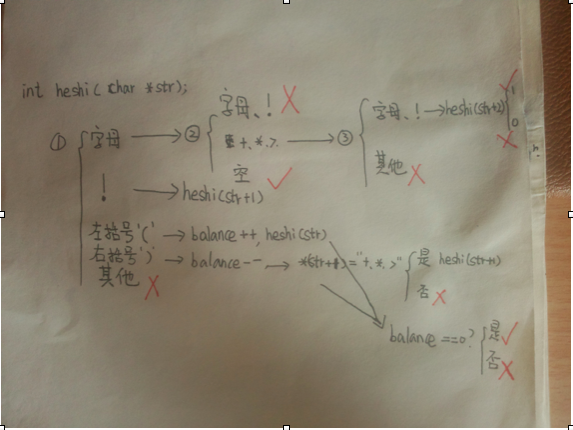 int heshi(char *str);
① 字母 → ② 字母、! ✗
+、*、> → ③ 字母、! → heshi(str+2) 1 ✓
0 ✗
其他 ✗
空 ✓
! → heshi(str+1)
左括号'(' → balance++, heshi(str)
右括号')' → balance-- → *(str+1)="+、*、>" 是 heshi(str+1)
否 ✗
其他 ✗
balance==0? 是 ✓
否 ✗